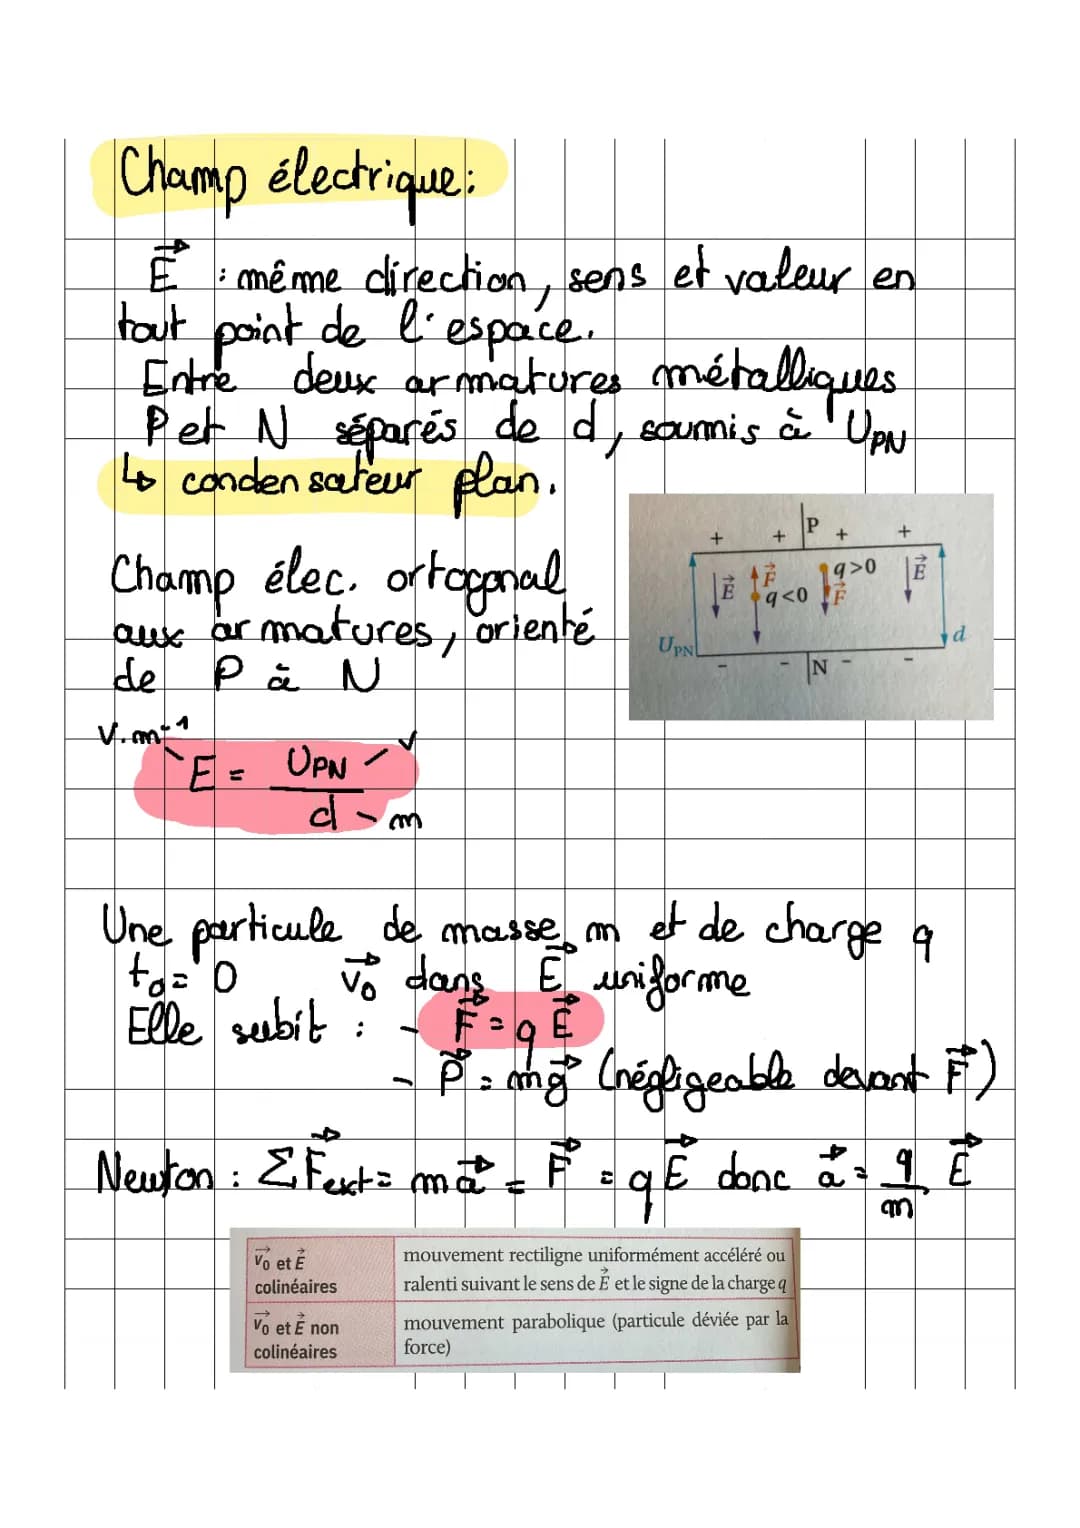 Champ électrique:
E⃗ : même direction, sens et valeur en
tout point de l'espace.
Entre deux armatures métalliques
P et N séparés de d, soumis à U_PN
↳ condensateur plan.
+ + P + +
E⃗ F⃗ q<0 q>0 F⃗ E⃗
U_PN d
- - N - -
Champ élec. ortogonal
aux armatures, orienté
de P à N
V.m⁻¹ E = U_PN / d V m
Une particule de masse m et de charge q
t₀ = 0 v₀⃗ dans E⃗ uniforme
Elle subit : - F⃗ = q E⃗
- P⃗ = mg⃗ (négligeable devant F⃗)
Newton : ΣF⃗ext = m a⃗ = F⃗ = q E⃗ donc a⃗ = q/m E⃗
v₀⃗ et E⃗
colinéaires
mouvement rectiligne uniformément accéléré ou
ralenti suivant le sens de E⃗ et le signe de la charge q
v₀⃗ et E⃗ non
colinéaires
mouvement parabolique (particule déviée par la
force)